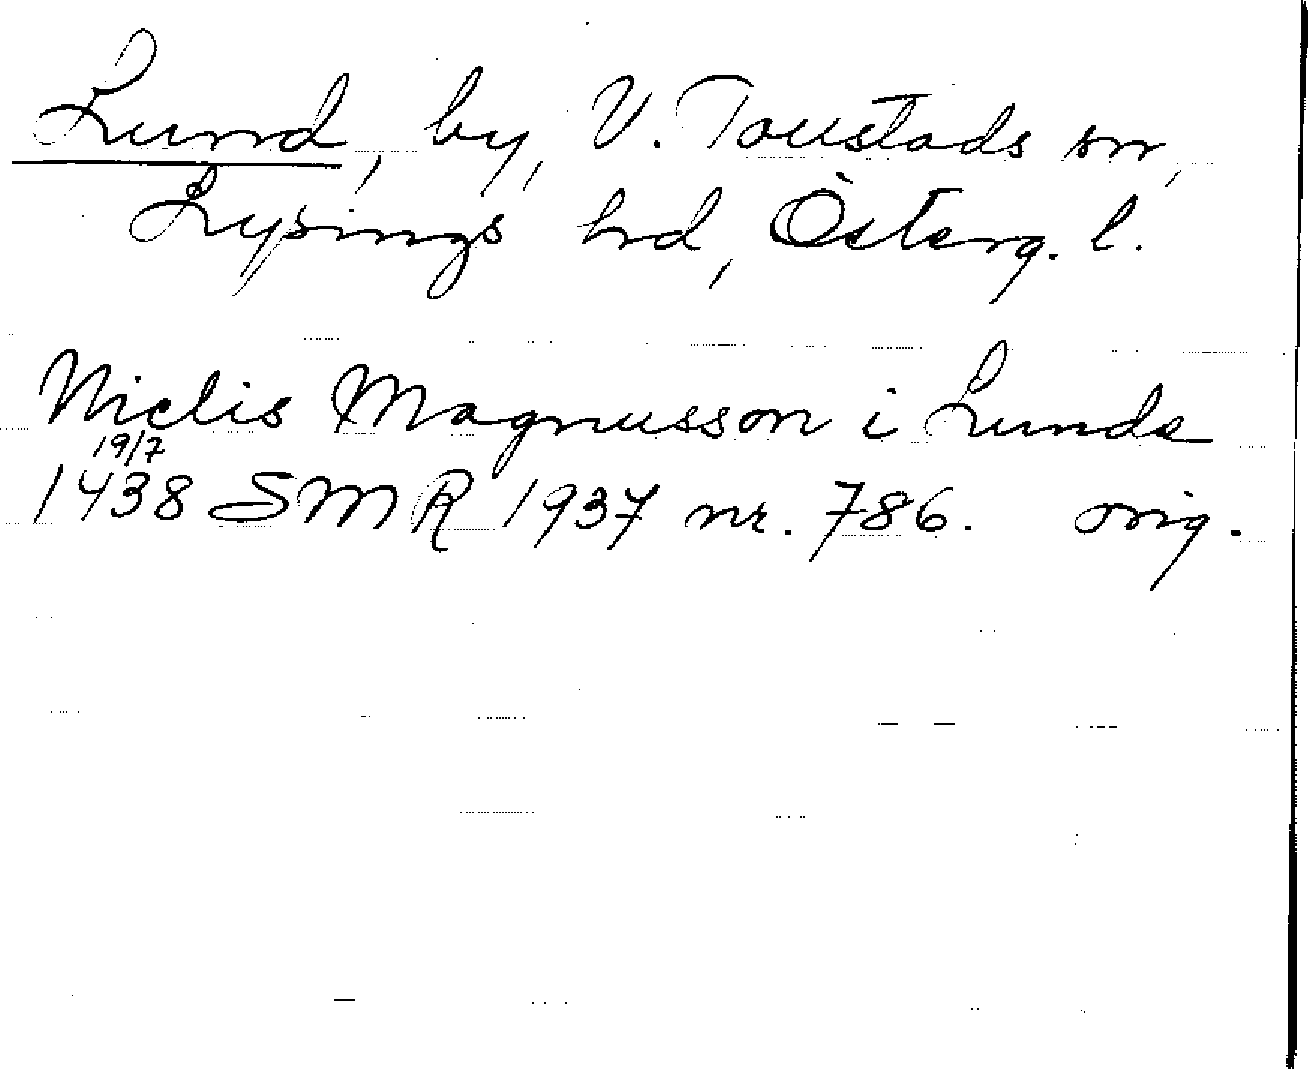 Lund, by, V. Toustads sn,
Lysings hd, Österg. l.
Niclis Magnusson i Lunde
19/7
1438 SMR 1937 nr. 786. orig.